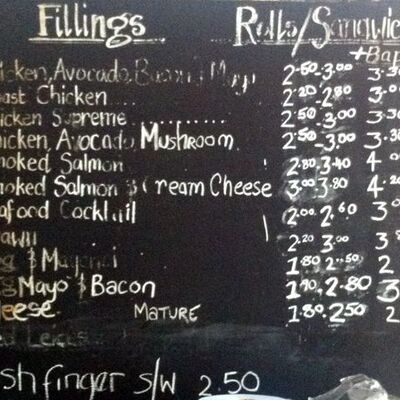 Fillings Rolls/Sandwic
+Bap
icken, Avocado, Bacon & Mayo 2.50-3.00 3.3
ast Chicken.... 2.20-2.80 3.0
icken Supreme .......... 2.50-3.00 3.
icken, Avocado Mushroom 2.50-3.00 3.3
moked Salmon 2.80-3.40 4
moked Salmon & Cream Cheese 3.00 3.80 4.20
afood Cocktail 2.00-2.60 3
awn 2.20 3.00 3.8
g & Mayo 1.80 2.50 2
g Mayo & Bacon 1.90-2.80 3
eese MATURE 1.80-2.50
ed Leicester
sh finger s/w 2.50